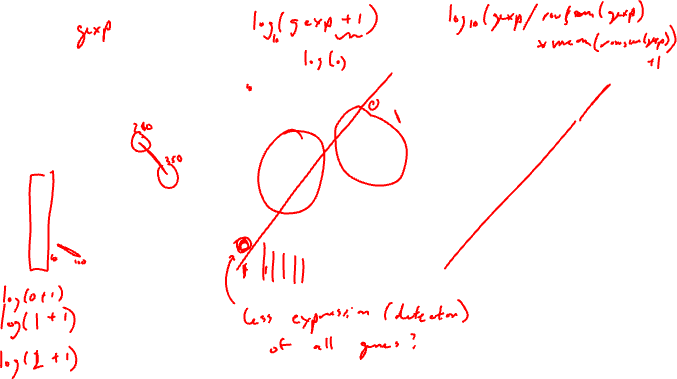 gexp
log10(gexp + 1)
log(0)
log10(gexp/rowSum(gexp)
x mean(rowSum(gexp))
+1
0
1
240
350
0
log(0+1)
log(1+1)
log(1+1)
Less expression (detection)
of all genes?